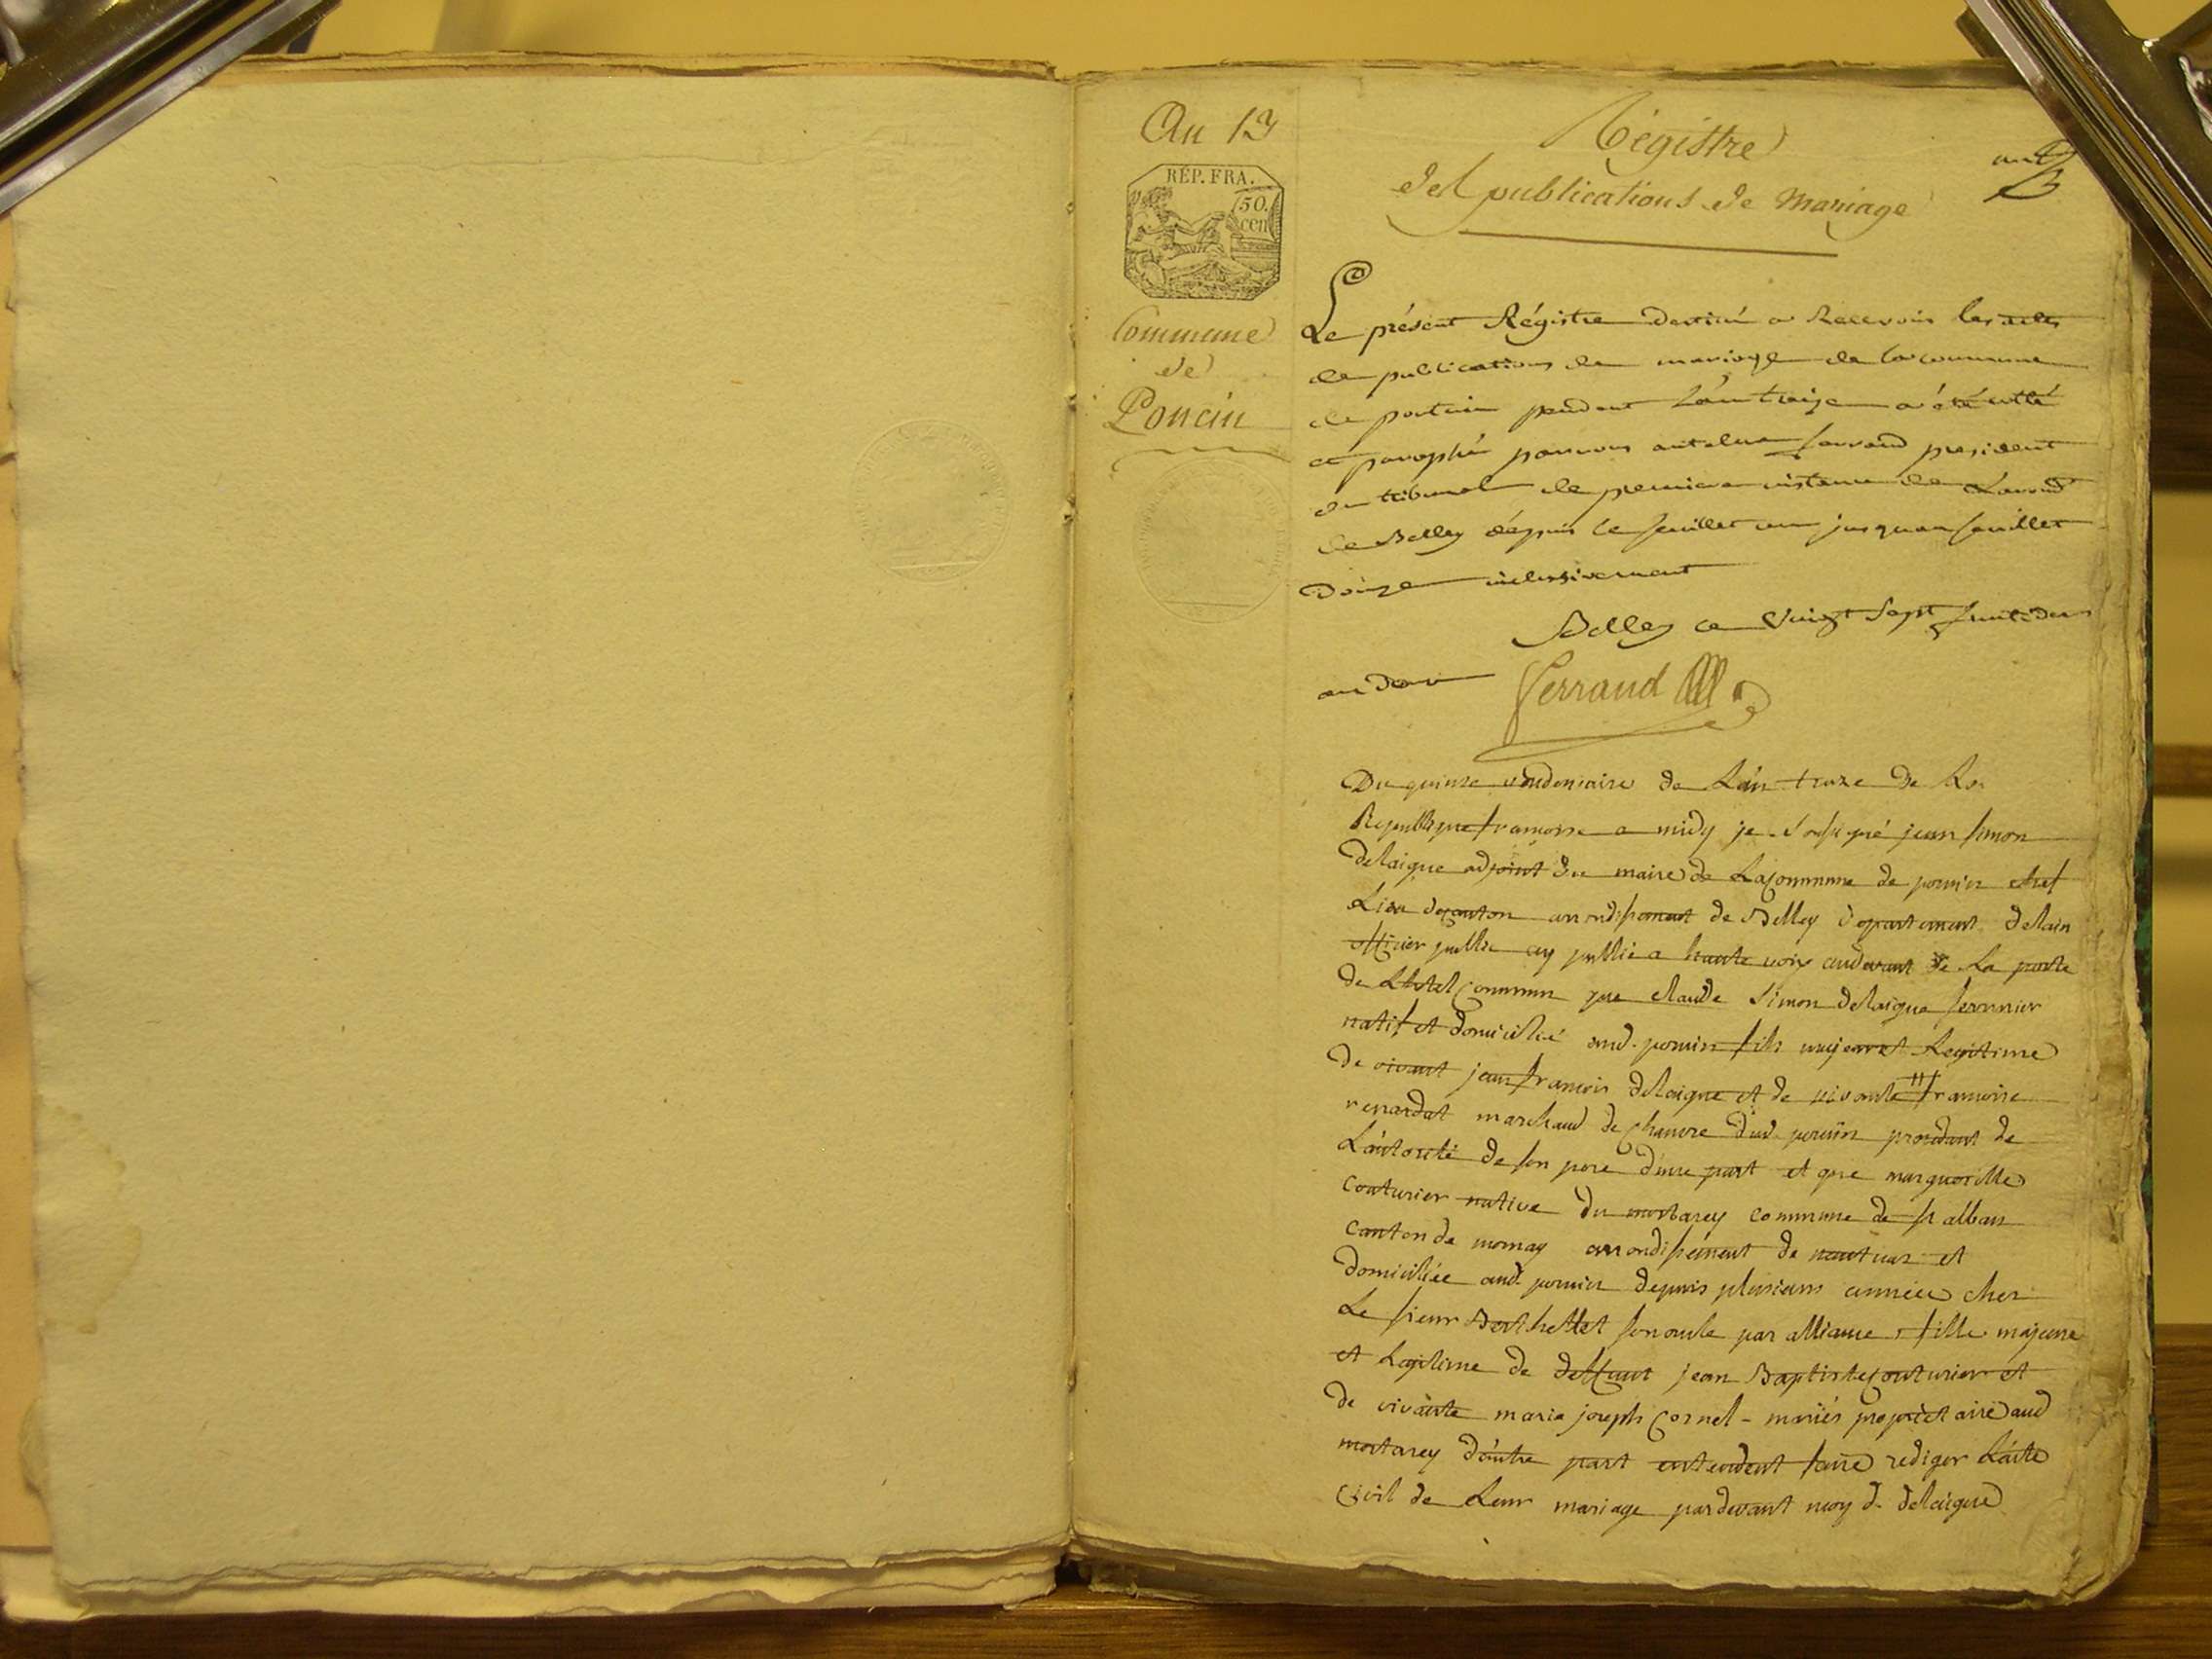 An 13
RÉP. FRA.
50.
cen
Commune
de
Poncin
Régistre
des publications de mariage
Le présent Régistre destiné a Recevoir les actes
de publications de mariage de la commune
de poncin pendant l'an treize a été cotté
et paraphé par nous antelme ferrand president
du tribunal de premiere instance de L'arrond
de Belley dépuis le feuillet un jusquau feuillet
douze inclusivement
Belley ce vingt sept fructidor
an douze
ferrand
Du quinze vendemiaire de L'an treize de La
Republique francoise a midy je soussigné jean simon
delaigue adjoint du maire de La commune de poncin chef
Lieu de canton arrondissement de Belley departement delain
officier public ay publié a haute voix audevant de La porte
de Lhotel Commun que claude simon delaigue
natif et domicilié aud. poncin fils majeur et Legitime
de vivant jean francois delaigue et de vivante francoise
renardat marchand de chanvre dud. poncin procedant de
L'autorité de son pere d'une part et que margueritte
couturier native du mortarey commune de st alban
canton de mornay arrondissement de nantua et
domiciliée aud. poncin depuis plusieurs années chez
Le sieur Berthettet son oncle par alliance, fille majeure
et Legitime de deffunt jean Baptiste couturier et
de vivante marie joseph Cornel - mariés proprietaire aud
mortarey d'autre part entendent faire rediger L'acte
Civil de Leur mariage pardevant moy d. delaigue